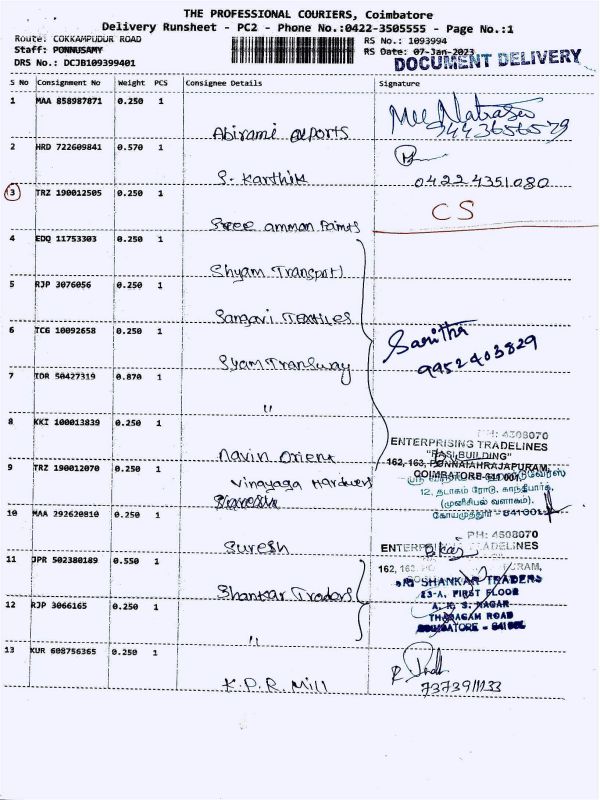 THE PROFESSIONAL COURIERS, Coimbatore
Delivery Runsheet - PC2 - Phone No.:0422-3505555 - Page No.:1
Route: COKKAMPUDUR ROAD
RS No.: 1093994
Staff: PONNUSAMY
RS Date: 07-Jan-2023
DOCUMENT DELIVERY
DRS No.: DCJB109399401
S No Consignment No Weight PCS Consignee Details Signature
1 MAA 858987871 0.250 1
Abirami exports
9443656579
2 HRD 722609841 0.570 1
S. Karthik
04224351080
13 TRZ 190012505 0.250 1
CS
Sree amman Paints
4 EDQ 11753303 0.250 1
Shyam Transport
5 RJP 3076056 0.250 1
Sangavi Textiles
6 TCG 10092658 0.250 1
Saritha
9952403829
Syam Transway
7 IDR 50427319 0.870 1
"
8 KKI 100013839 0.250 1
PH: 4508070
ENTERPRISING TRADELINES
"RASI BUILDING"
Navin Orient
162, 163, PONNAIAHRAJAPURAM,
9 TRZ 190012070 0.250 1
COIMBATORE-641 001.
Vinayaga Hardwers
12, தடாகம் ரோடு, காந்திபார்க்,
(முனிசிபல் வளாகம்),
கோயமுத்தூர் - 641001
10 MAA 292620810 0.250 1
PH: 4508070
Suresh
ENTERPRISING TRADELINES
11 JPR 502380189 0.550 1
SRI SHANKAR TRADERS
13-A, FIRST FLOOR
Shankar Traders
A. K. S. NAGAR
12 RJP 3066165 0.250 1
THADAGAM ROAD
COIMBATORE - 641001
"
13 KUR 608756365 0.250 1
K.P.R. Mill
7373911133